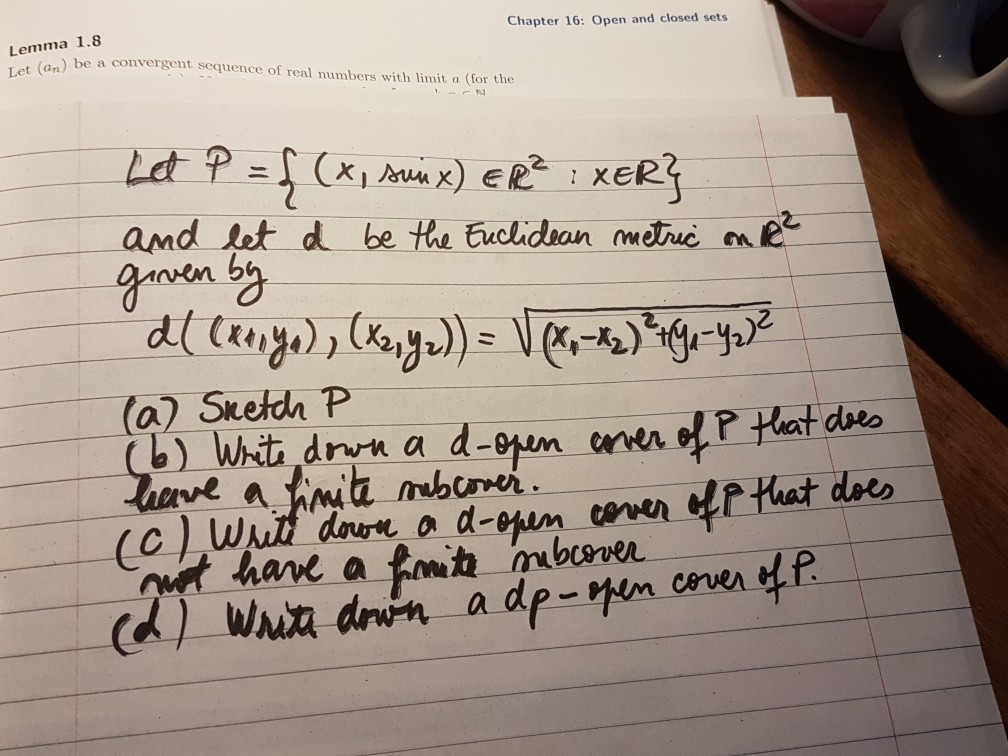 Chapter 16: Open and closed sets
Lemma 1.8
Let (aₙ) be a convergent sequence of real numbers with limit a (for the
Let P = { (x, sin x) ∈ ℝ² : x∈ℝ}
and let d be the Euclidean metric on ℝ²
given by
d( (x₁,y₁), (x₂,y₂)) = √((x₁-x₂)²+(y₁-y₂)²)
(a) Sketch P
(b) Write down a d-open cover of P that does
have a finite subcover.
(c) Write down a d-open cover of P that does
not have a finite subcover
(d) Write down a dp-open cover of P.